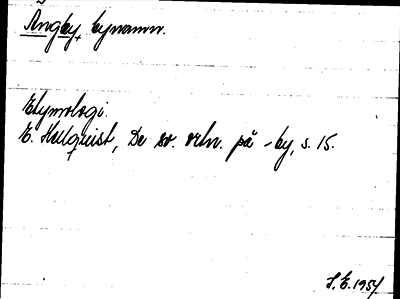 Ängby, bynamn.
Etymologi.
E. Hellquist, De sv. ortn. på -by, s. 15.
S.E. 1954